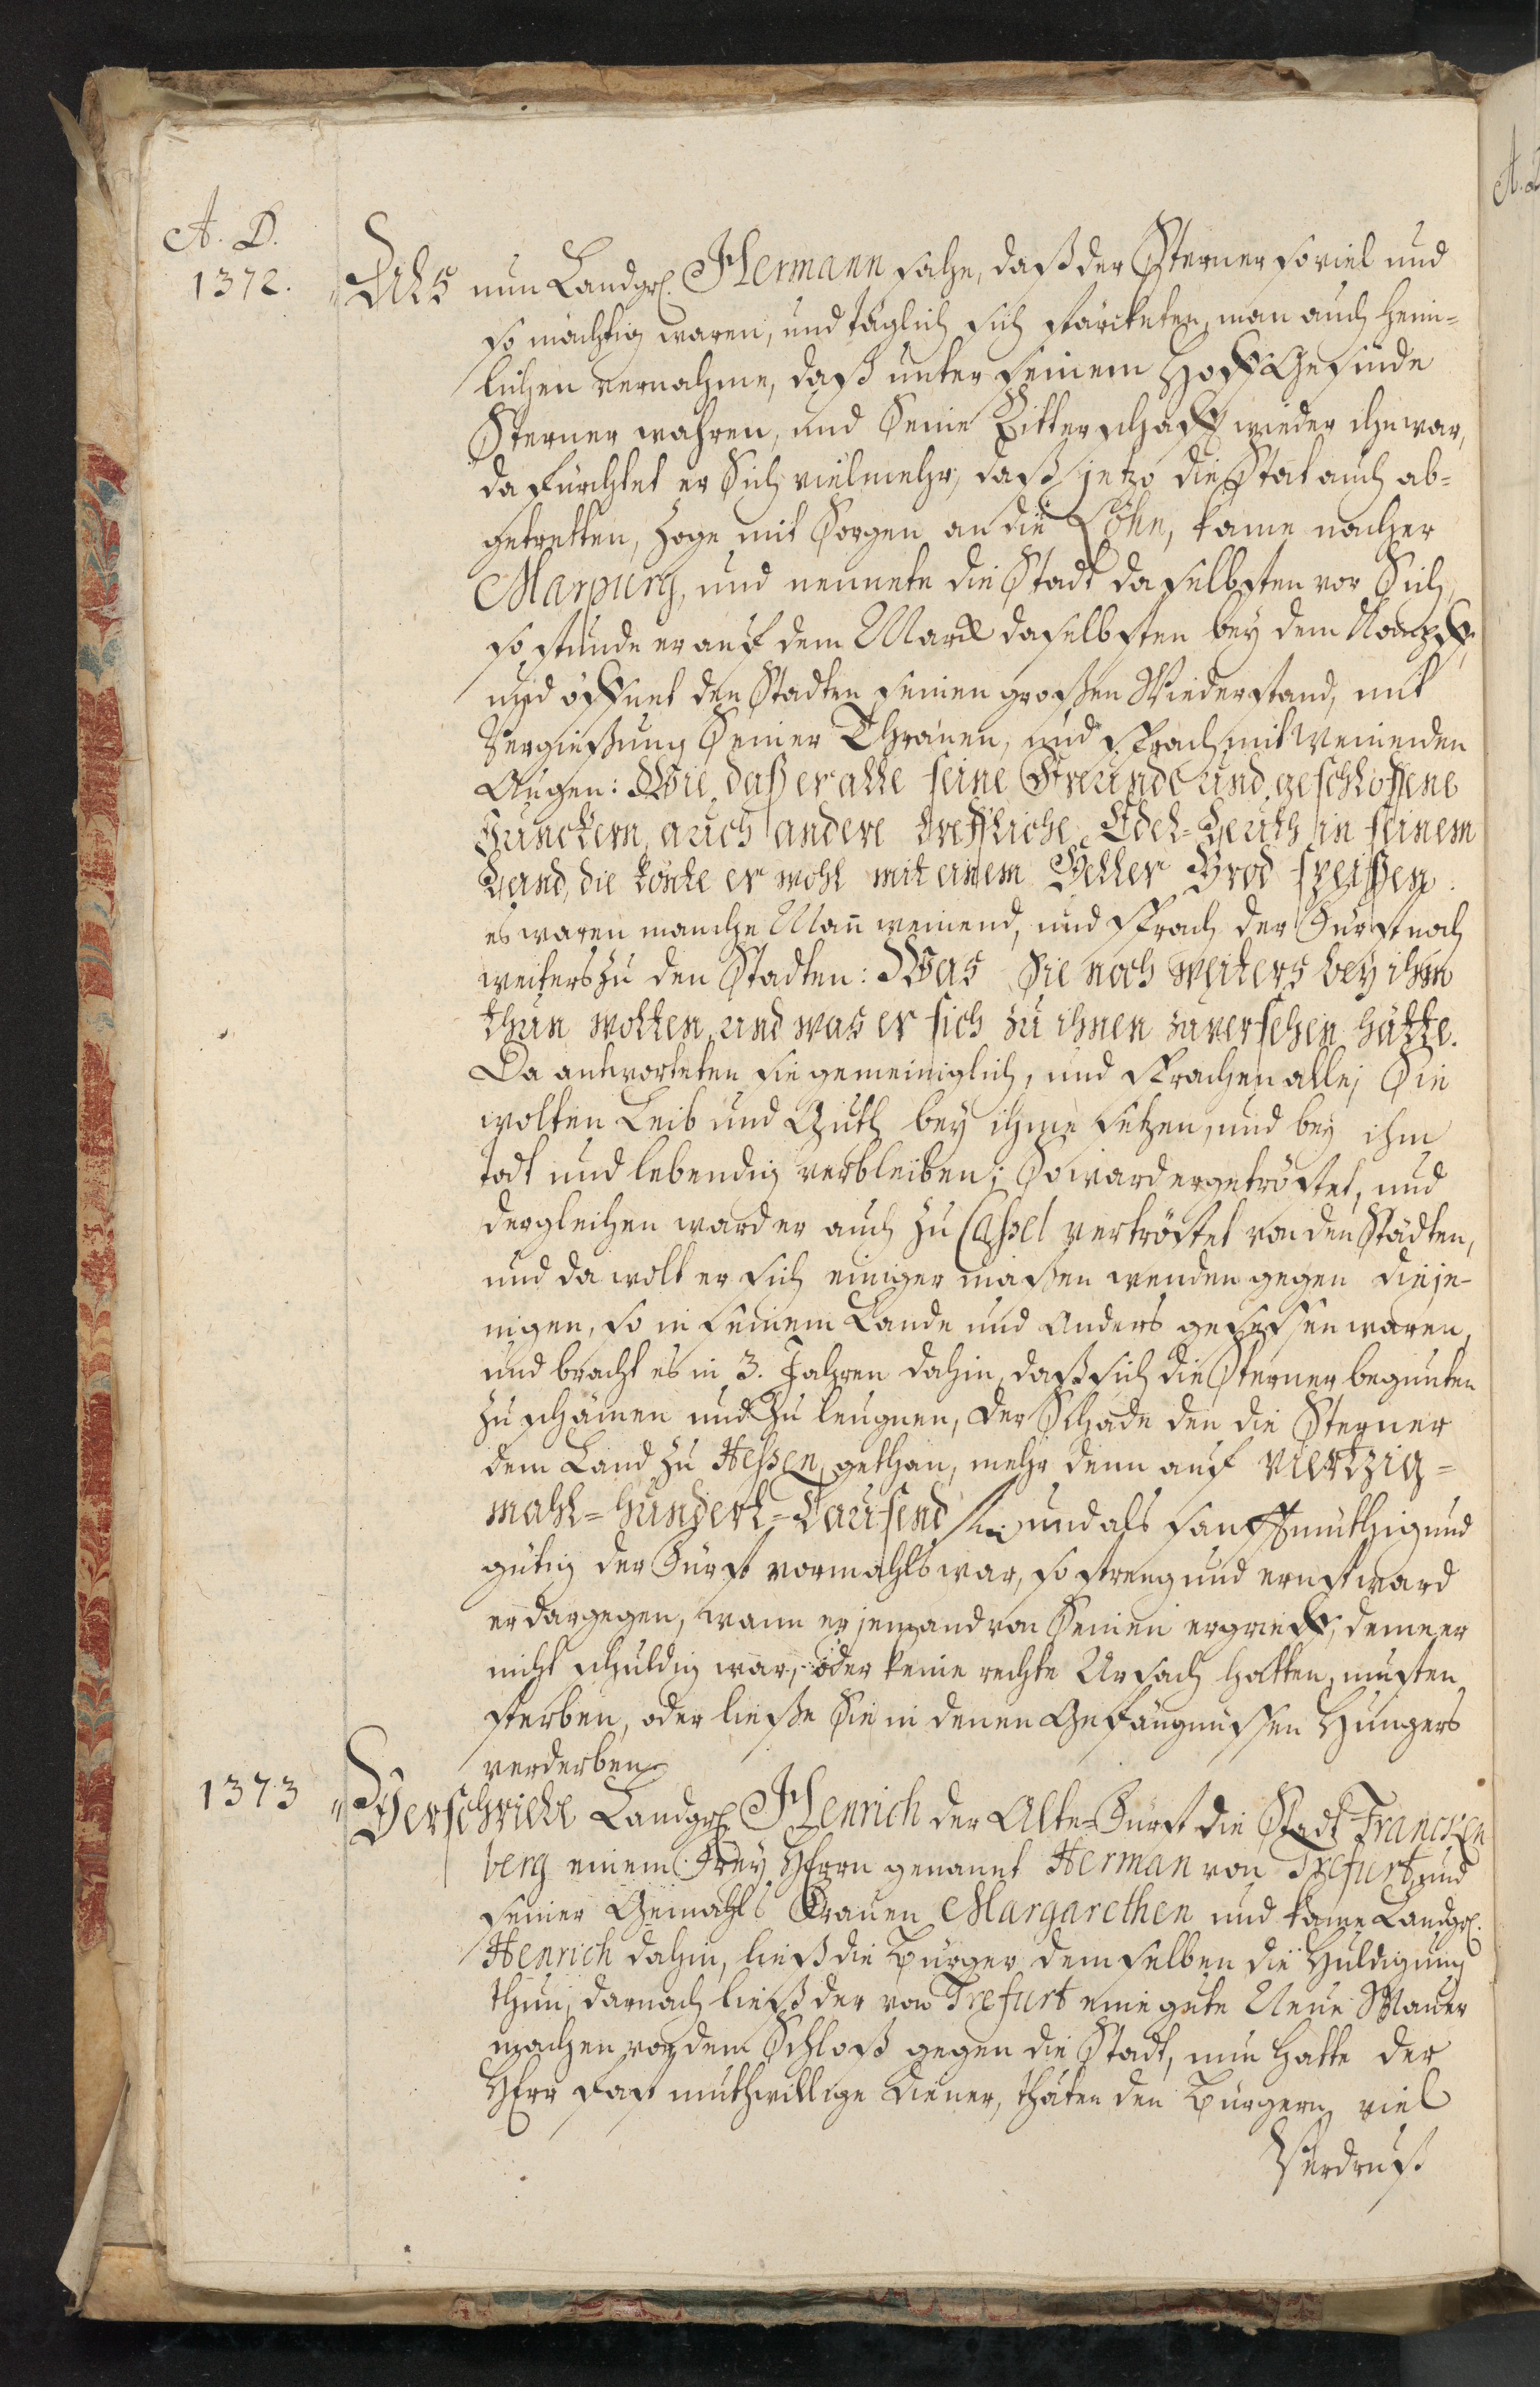 A. D.
1372.
Als nun Landgr. Hermann sahe, daß der Sterner so viel und
so mächtig waren, und täglich sich stärcketen, man auch heim-
lichen vernahme, daß unter seinem Hoff Gesinde
Sterner wahren, und Seine Ritterschafft wieder ihn war,
da fürchtet er Sich vielmehr, daß jetzo die Stät auch ab-
getretten, zoge mit Sorgen an die Löhn, kame nacher
Marpurg, und nennete die Stadt daselbsten vor Sich,
so stunde er auf dem Marck daselbsten bey dem
und öffnet den Stadten seinen großen Wiederstand, mit
Vergießung Seiner Thränen, und sprach mit weinenden
Augen: Wie daß er alle seine Freunde und geschloßene
Junckern, auch andere treffliche Edel-Leuth in seinem
Land, die könte er wohl mit einem Heller Brod speißen.
es waren manche Mañ weinend, und sprach der Fürst noch
weiters zu den Stadten: Was Sie noch weiters bey ihm
thun wolten, und was er sich zu ihnen zuversehen hätte.
Da antworteten sie gemeiniglich, und sprachen alle; Sie
wolten Leib und Guth bey ihme setzen, und bey ihm
todt und lebendig verbleiben; So ward er getröstet, und
dergleichen ward er auch zu Cassel vertröstet von den Städten,
und da wolt er sich einiger maßen wenden gegen dieje-
nigen, so in seinem Lande und anders gesessen waren,
und bracht es in 3. Jahren dahin, daß sich die Sterner begunten
zu schämen und zu leugnen, der Schade den die Sterner
dem Land zu Heßen gethan, mehr denn auf viertzig-
mahl-hundert-Tausend und als sanfftmüthig und
gütig der Fürst vormahls war, so streng und ernst ward
er dargegen, wann er jemand von Seinen ergrieff, deme er
nicht schuldig war, oder keine rechte Ursach hatten, musten
sterben, oder ließe Sie in denen Gefängnüssen Hungers
verderben.
1373
Verschriebe Landgr. Henrich der Alte Fürst die Stadt Francken
berg einem Frey Herrn genannt Herman von Trefurt, und
seiner Gemahls Frauen Margarethen und kame Landgr.
Henrich dahin, ließ die Bürger demselben die Huldigung
thun, darnach ließ der von Trefurt eine gute Neue Mauer
machen vor dem Schloß gegen die Stadt, nun hatte der
Herr fast muthwillige Diener, thäten den Bürgern viel
Verdruß